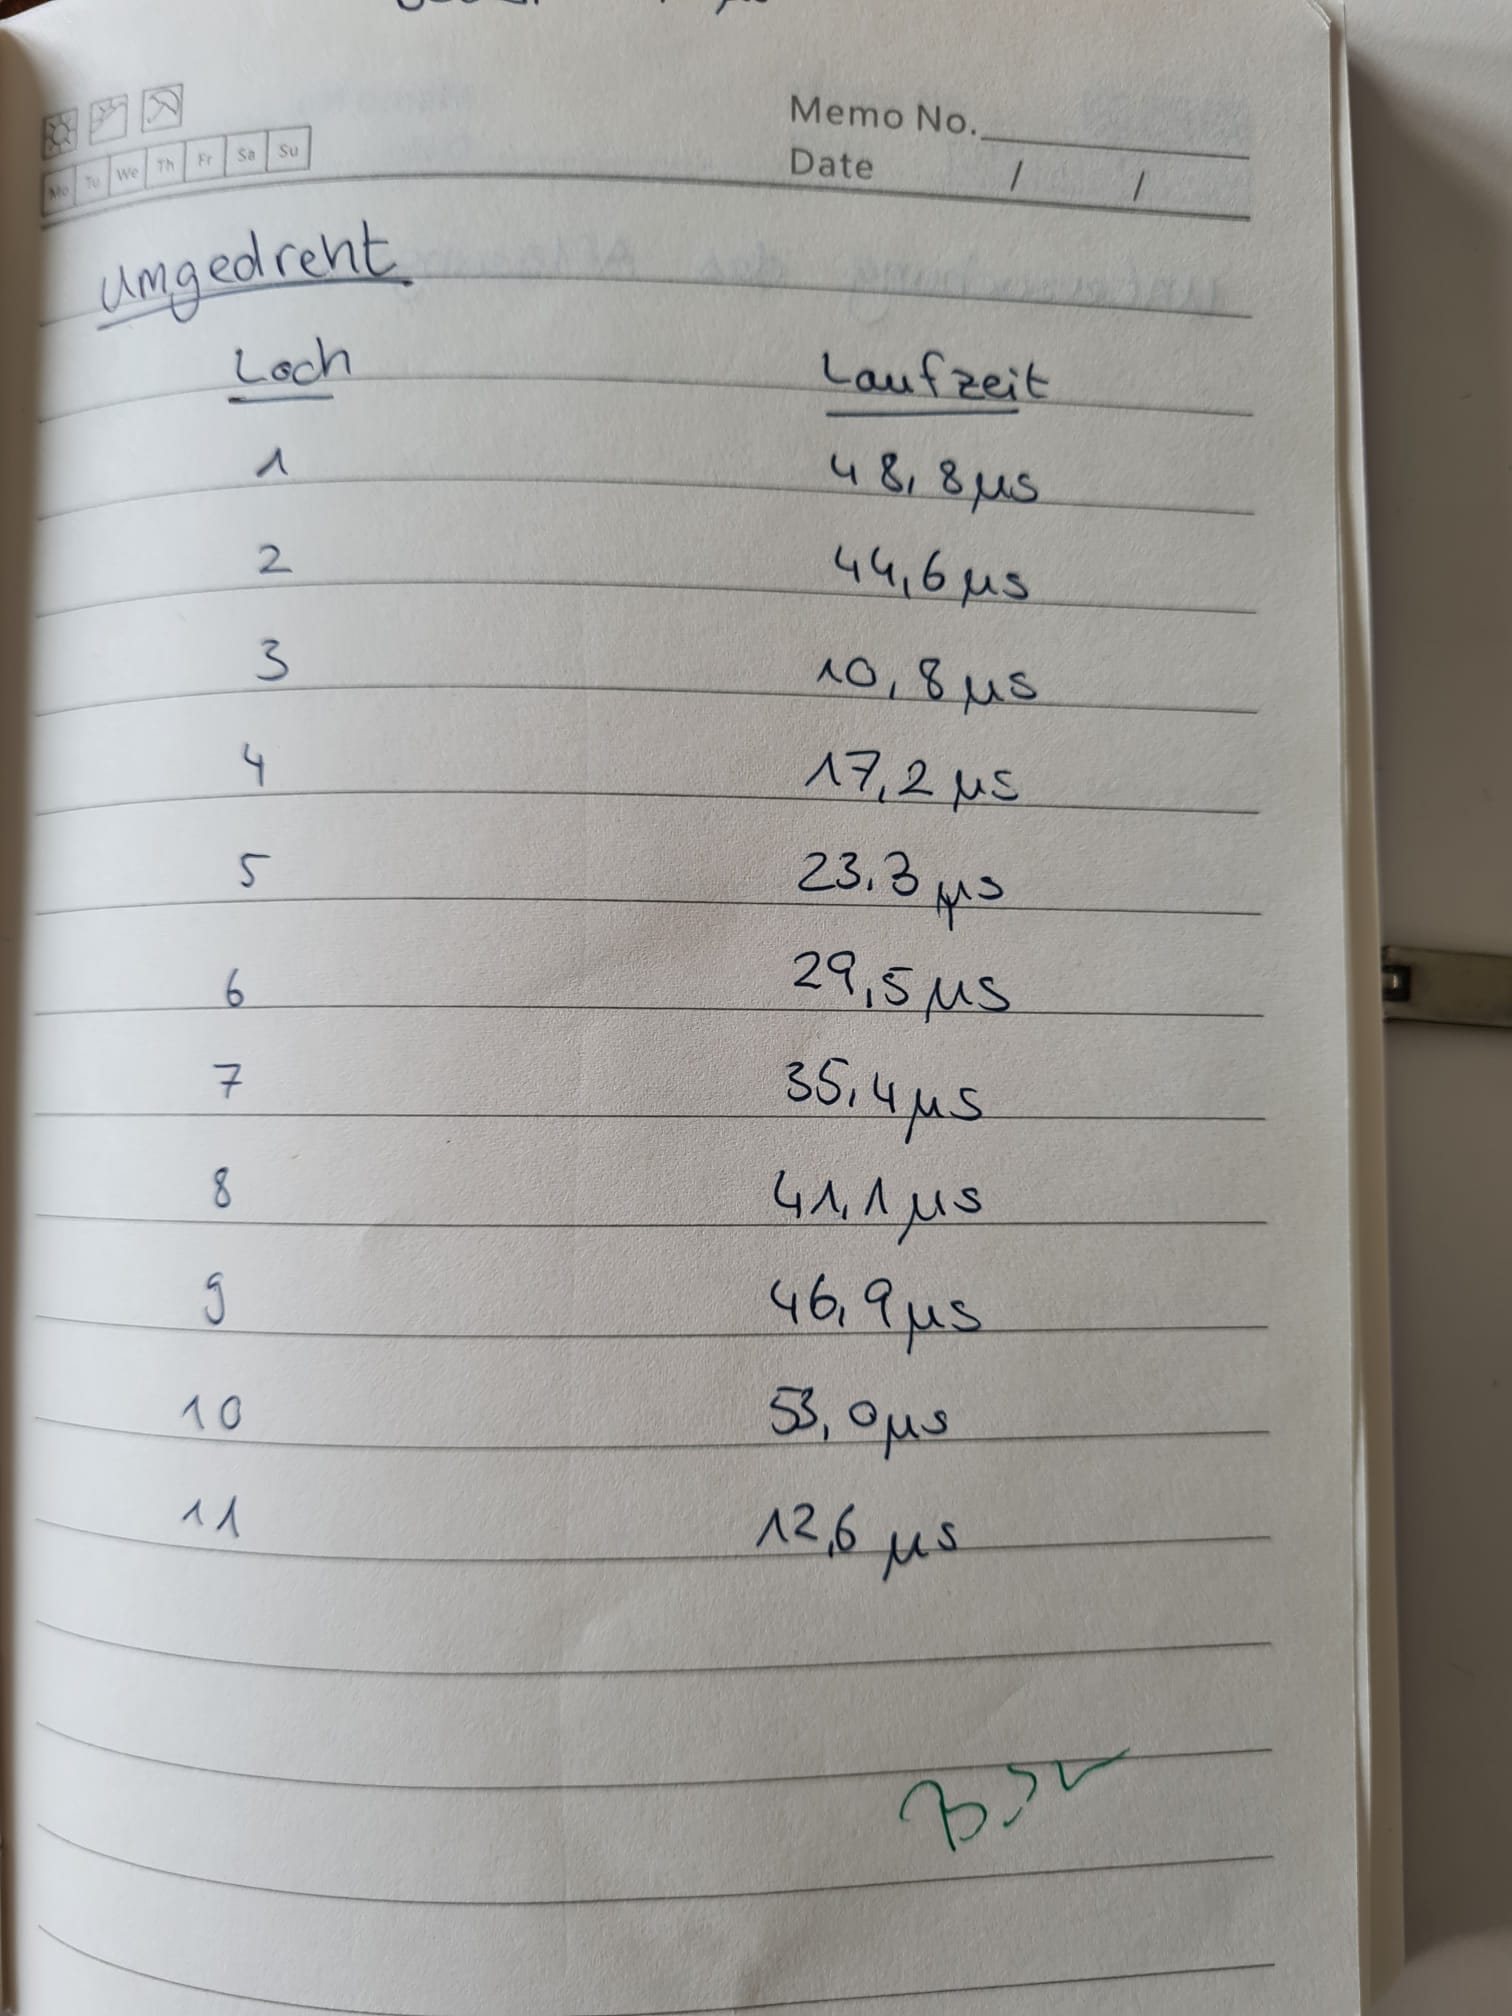 Memo No.
Date / /
Mo Tu We Th Fr Sa Su
umgedreht
Loch Laufzeit
1 48,8 µs
2 44,6 µs
3 10,8 µs
4 17,2 µs
5 23,3 µs
6 29,5 µs
7 35,4 µs
8 41,1 µs
9 46,9 µs
10 53,0 µs
11 12,6 µs